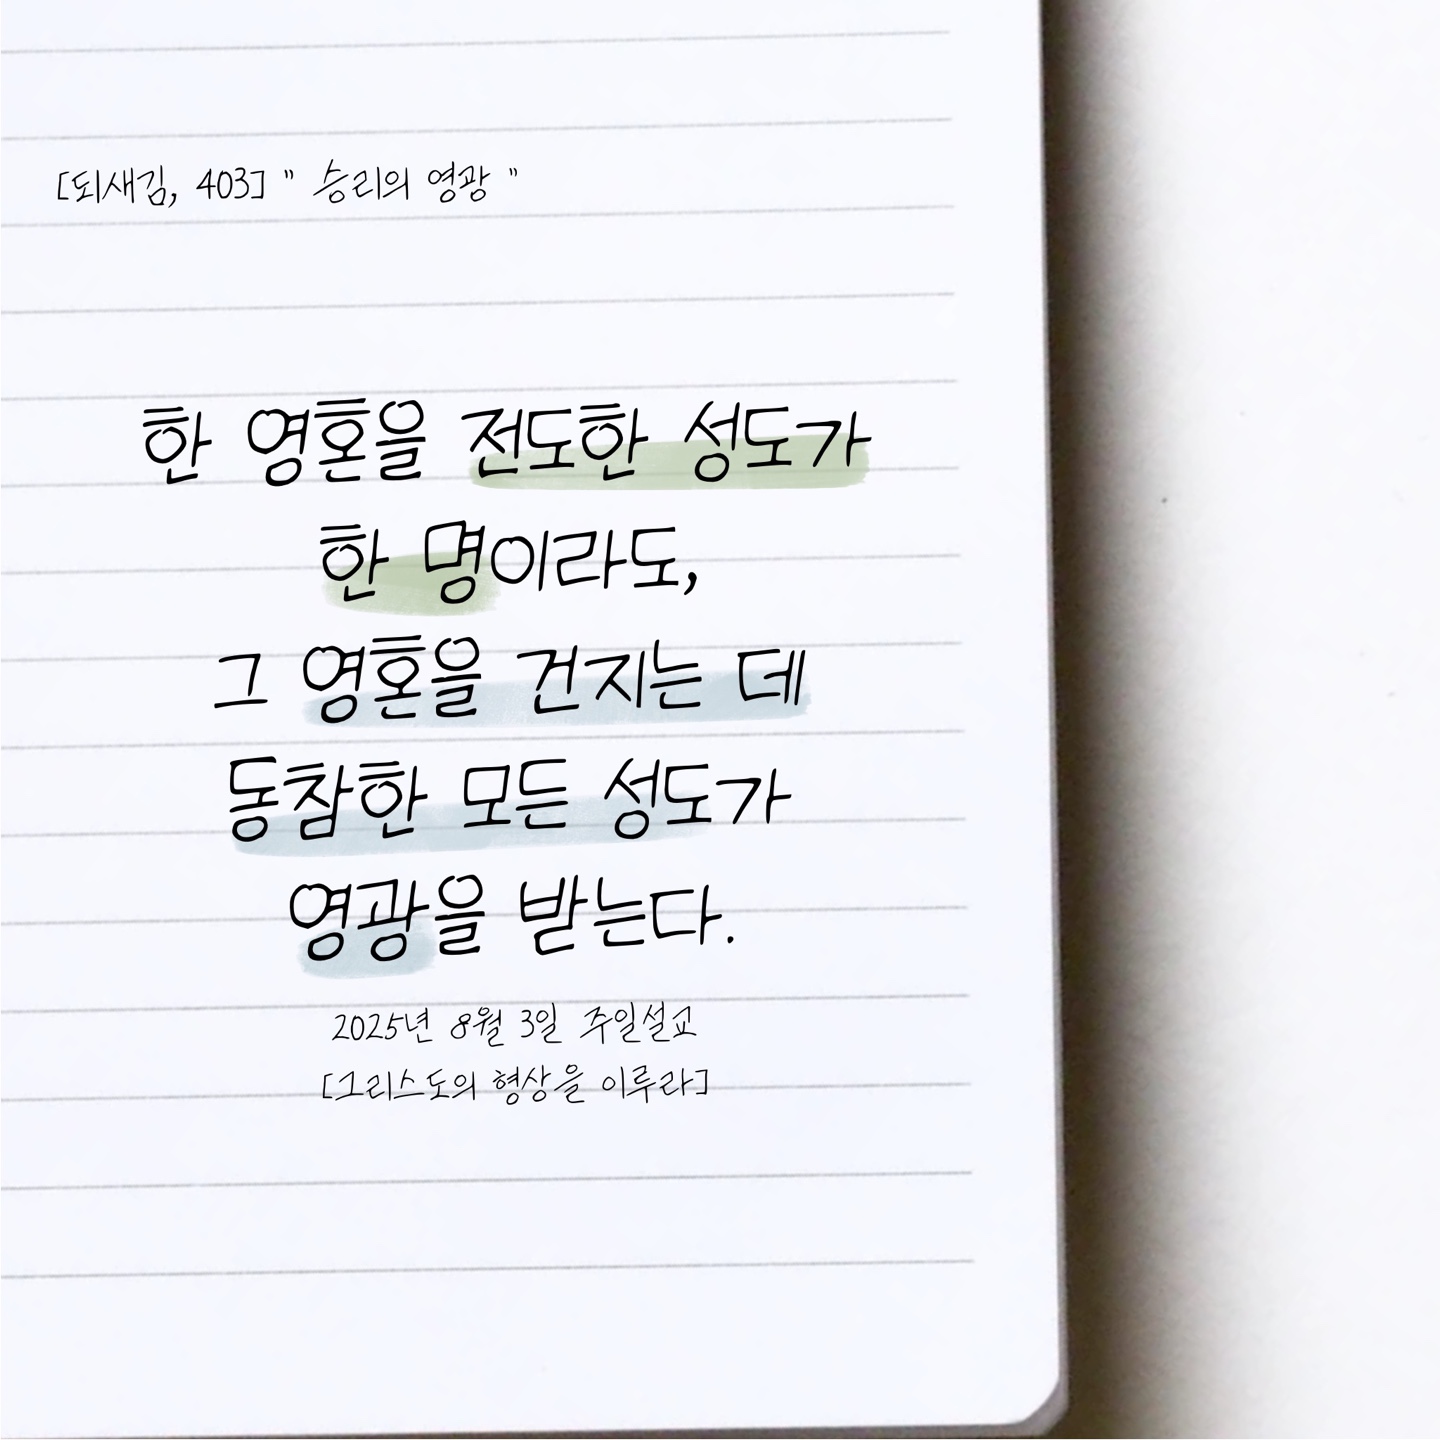 [되새김, 403] " 승리의 영광 "
한 영혼을 전도한 성도가
한 명이라도,
그 영혼을 건지는 데
동참한 모든 성도가
영광을 받는다.
2025년 8월 3일 주일설교
[그리스도의 형상을 이루라]